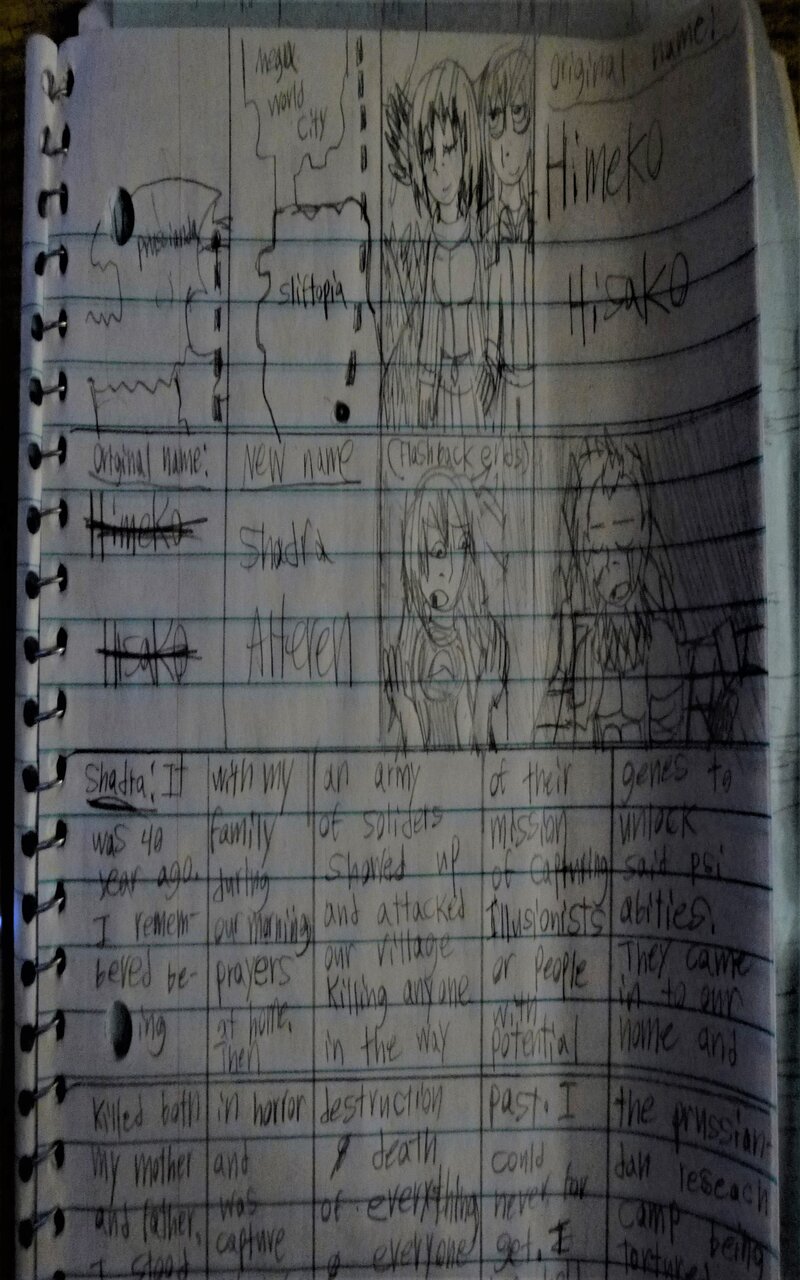 world
city
slittopia
original name:
Himeko
Hisako
Original name:
Himeko
Hisako
New name
Shadra
Alteren
(flashback ends)
Shadra: It
was 40
year ago.
I remem-
bered be-
ing
with my
family
during
our morning
prayers
at home.
Then
an army
of soliders
showed up
and attacked
our village
killing anyone
in the way
of their
mission
of capturing
Illusionists
or people
with
potential
genes to
unlock
said psi
abities.
They came
in to our
home and
killed both
my mother
and father.
I stood
in horror
and
was
capture
destruction
death
of everything
everyone
past. I
could
never for
get. I
the prussian-
dan reseach
camp being
tortured